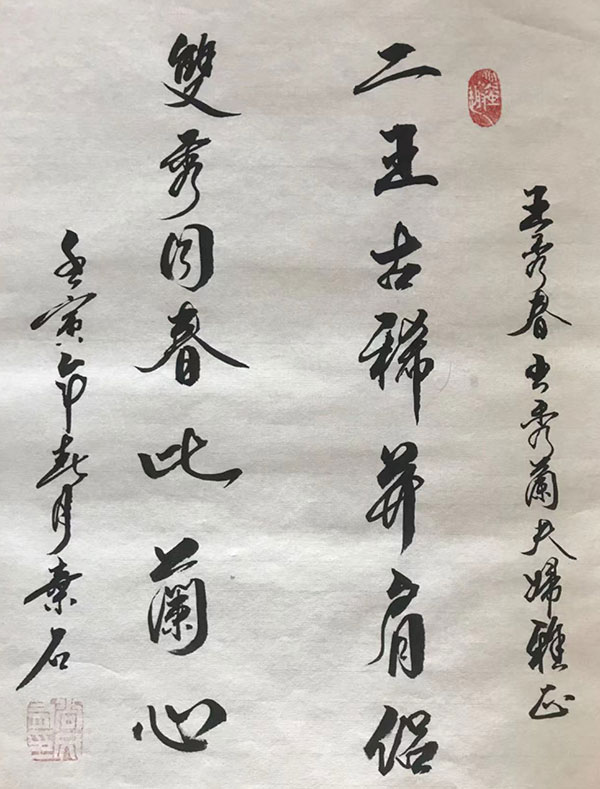 王秀春王秀蘭夫婦雅正
二王古稀并肩侣
雙秀同春此蘭心
壬寅年春月秦石